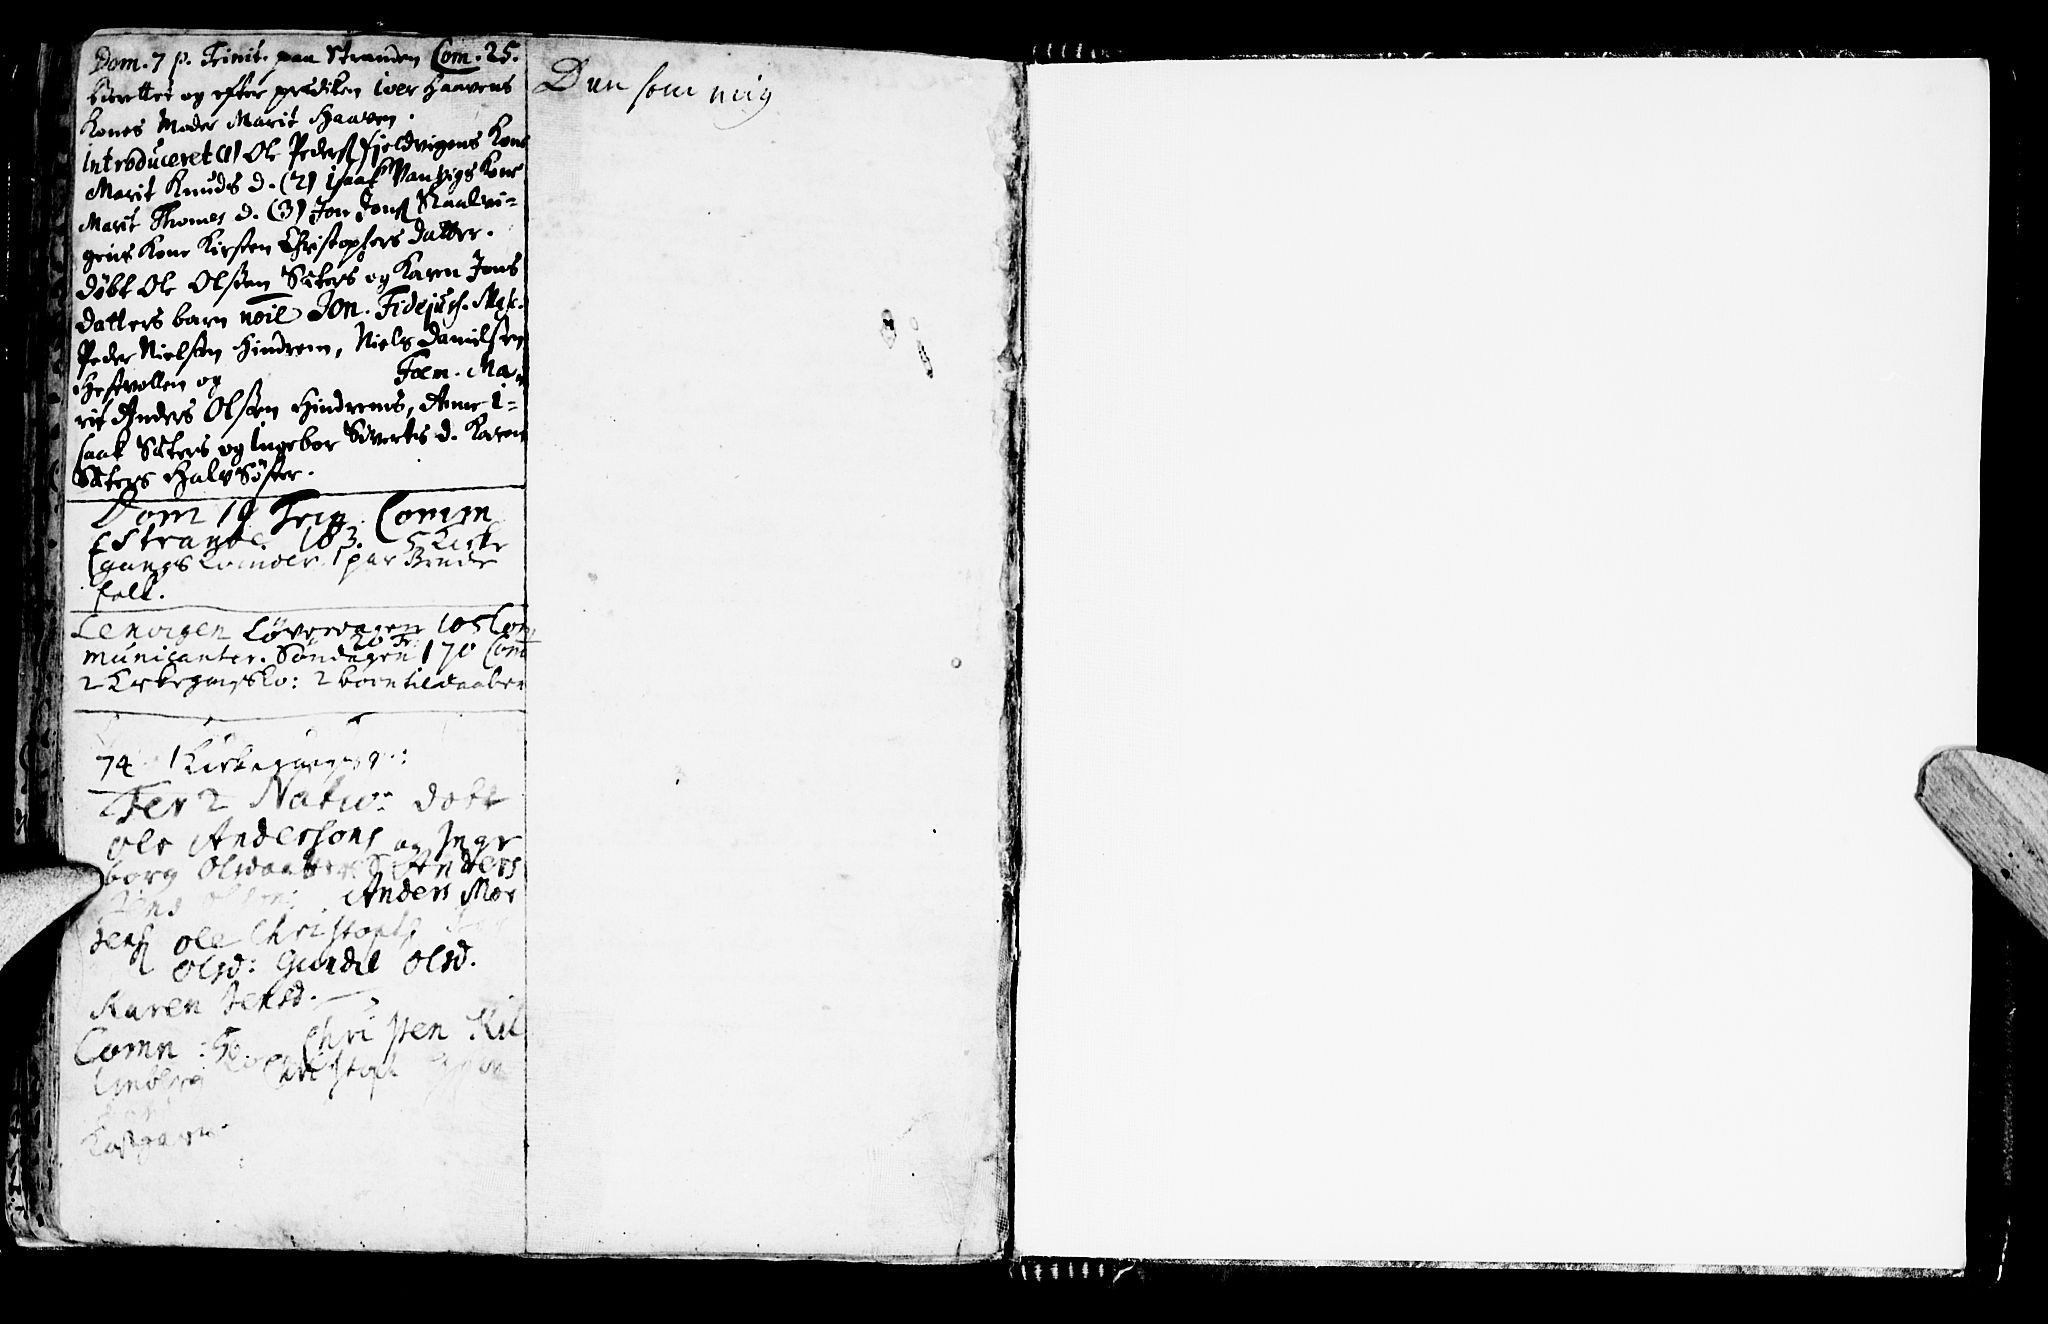 Dom. 7 p. Trinit. paa Stranden Com. 25.
Berettet og efter prædiken Iver Haavens
Kones Moder Marit Haaven.
introduceret (1) Ole Peders Fieldvigens Kone
Marit Knuds d. (2) Isaak Vanvigs Kone
Marit Thomes d. (3) Jon Jons Raalvi-
gens Kone Kirsten Christophers datter.
døbt Ole Olsøn Sæters og Karen Jons
datters barn noie Jon. Fidejuss. Mask.
Peder Nielsøn Hindrem, Niels Danielsøn
Hestvollen og Foem. Ma-
rit Anders Olsøn Hindrems, Anne I-
saak Sæters og Ingebor Siverts d. Karen
Sæters Halv Søster.
Dom 19 Trin. Comm
Strande 183. 5 Kirke
gangs Kvinder. 1 par Brude
folk.
Lenvigen Løverdagen 105 Com
municanter. Søndagen 20 Tr. 170 Com
2 Kirkegangsko: 2 børn til daaben
74 1 Kirkegangs
Fer 2 Nativ: døbt
Ole Andersøns og Inge
borg Olsdaatters S. Anders
Jens Anders Mor
tens Ole Christophs
Olsd: Gundel Olsd.
Karen Jensd.
Comn: 50. Christen Kil
Christoph
Dun som mig